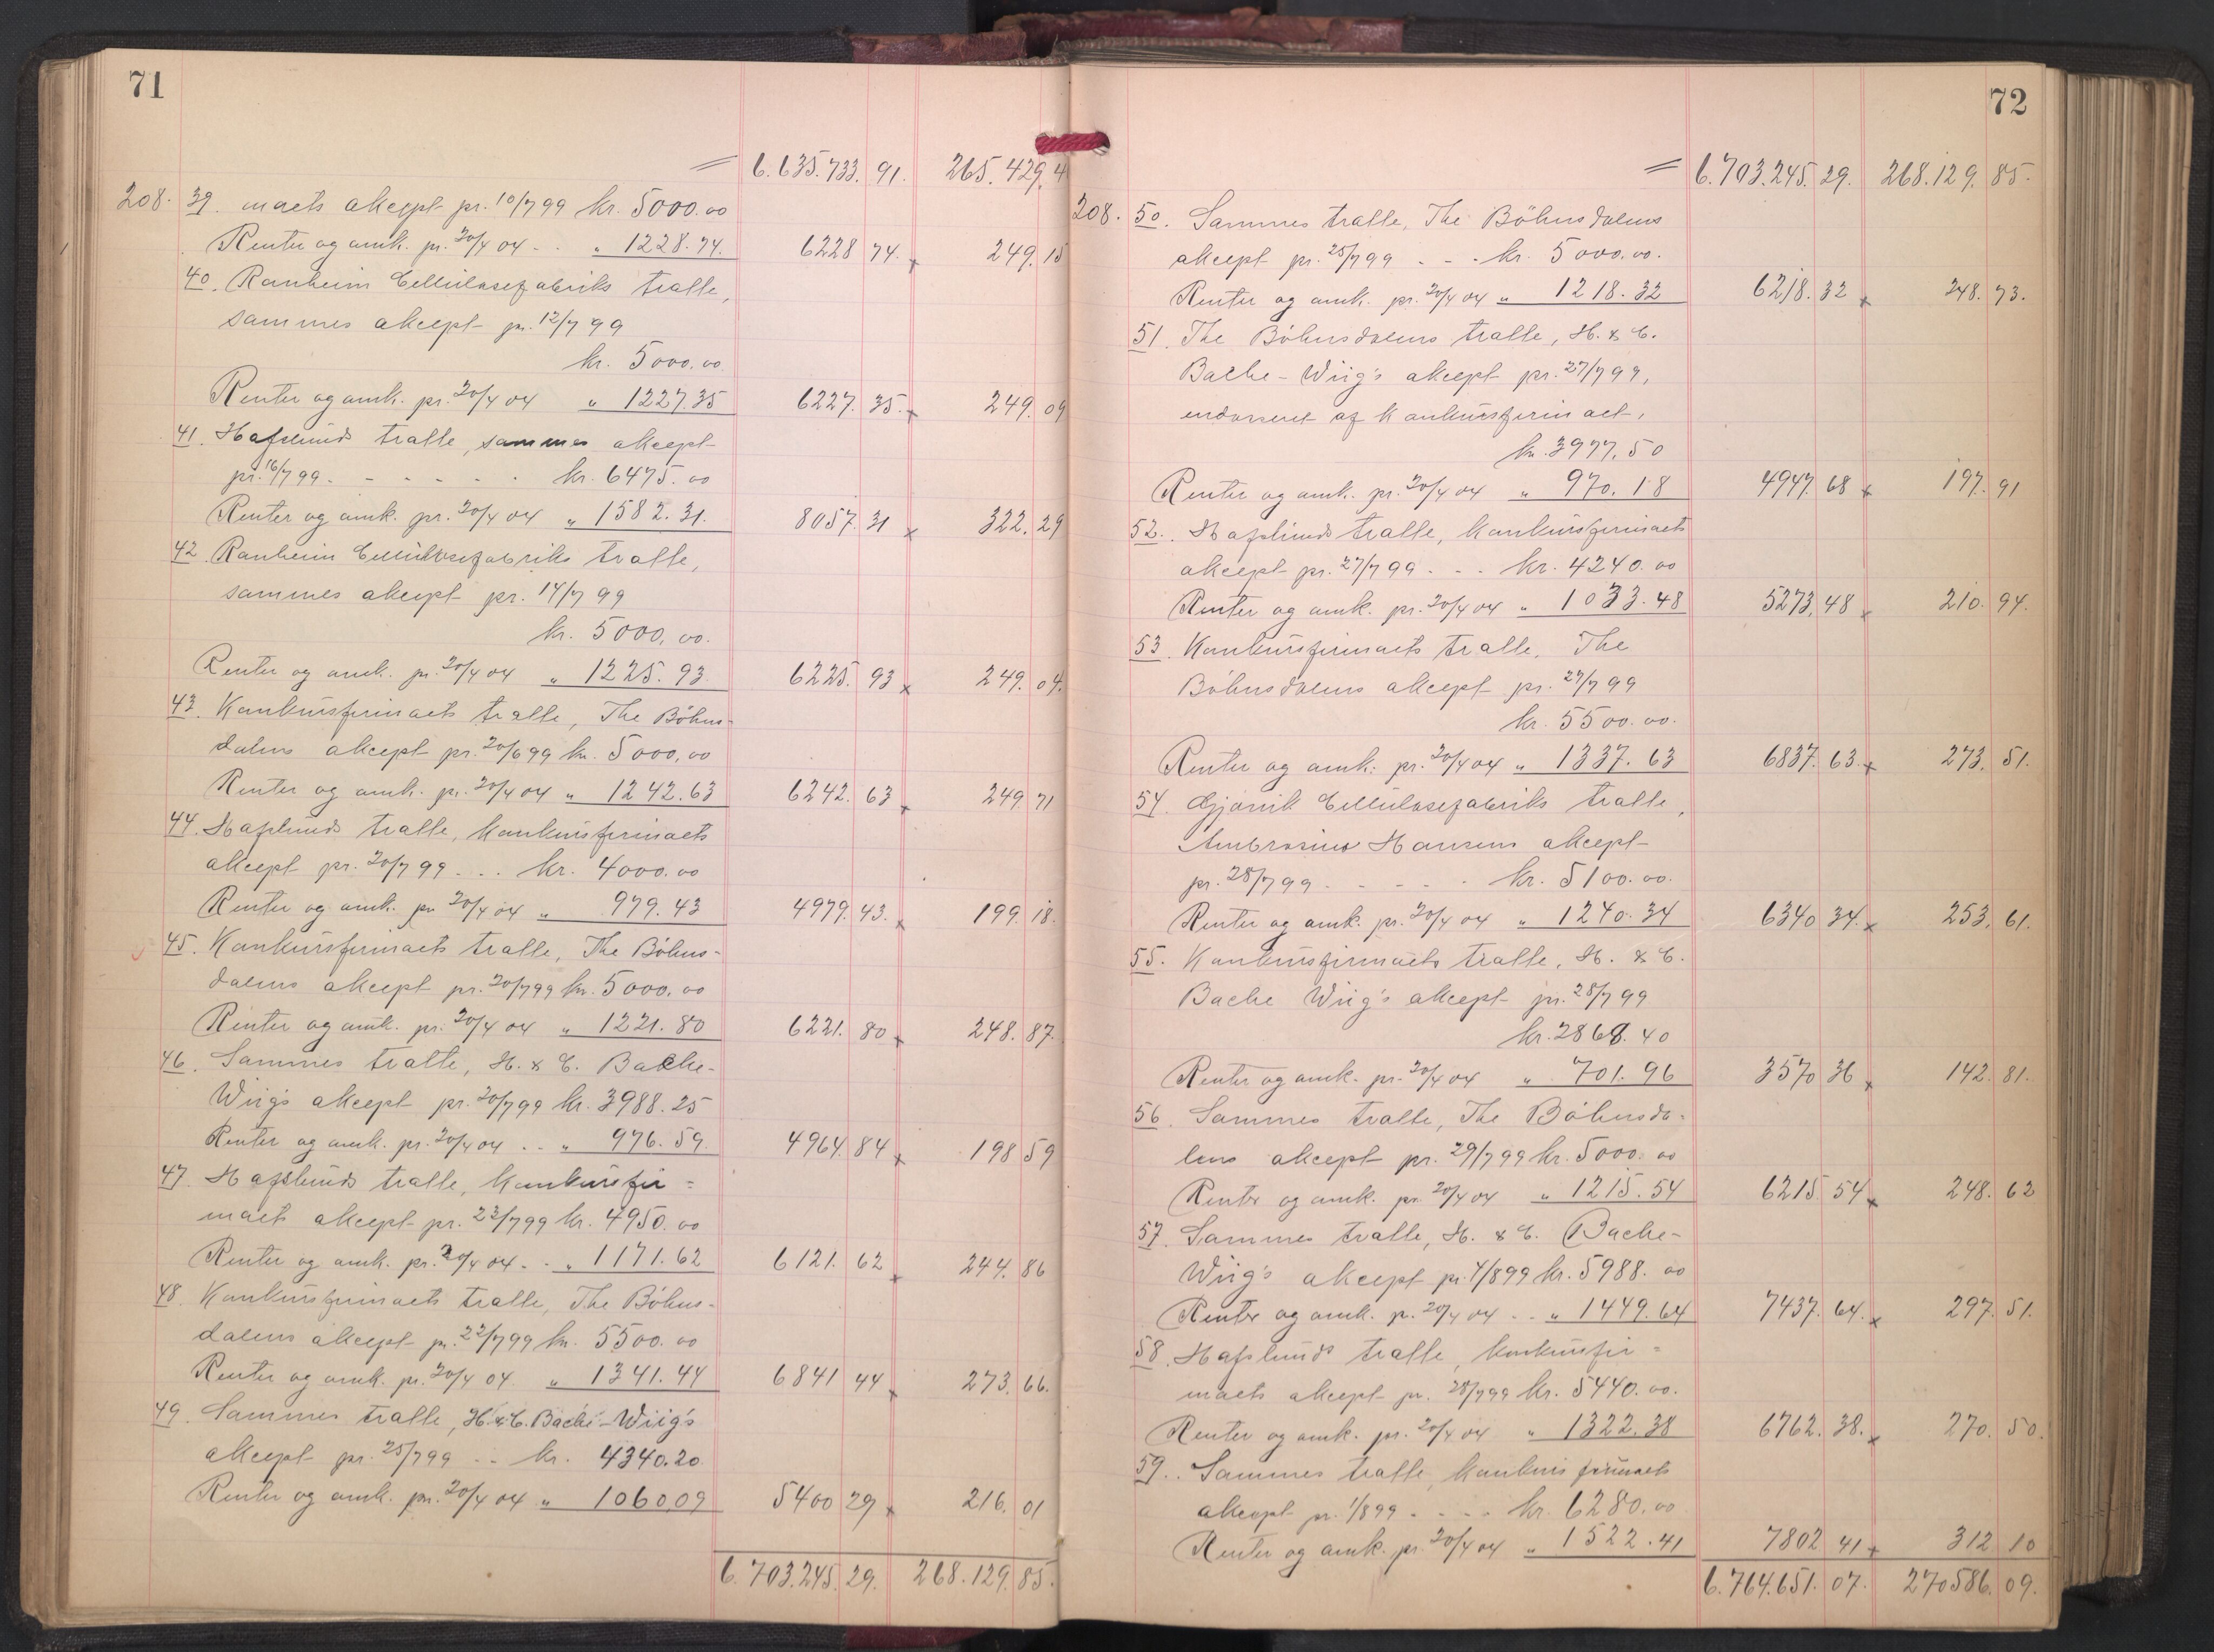 71
= 6.635.733.91. 265.429.4
208. 39. maets akcept pr. 10/7 99 kr. 5000.00
Renter og omk. pr. 20/4 04 - . „ 1228.74. 6228 74. x 249.15
40. Ranheim Cellulosefabriks tratte,
sammes akcept pr. 12/7 99
kr. 5000.00.
Renter og omk. pr. 20/4 04 „ 1227.35 6227.35. x 249.09
41. Hafslunds tratte, sammes akcept
pr. 16/7 99 - - - - - . kr. 6475.00
Renter og omk. pr. 20/4 04 „ 1582.31. 8057.31 x 322.29
42. Ranheim Cellulosefabriks tratte,
sammes akcept pr. 14/7 99
kr. 5000,00.
Renter og omk. pr. 20/4 04 „ 1225.93. 6225.93 x 249.04.
43. Konkursfirmaets tratte, The Böhns-
dalens akcept pr. 20/6 99 kr. 5000,00
Renter og omk. pr. 20/4 04 „ 1242.63 6242.63 x 249 71
44. Hafslunds tratte, konkursfirmaets
akcept pr. 20/7 99 . . . kr. 4000.00
Renter og omk. pr 20/4 04 „ 979.43 4979.43. x 199.18.
45. Konkursfirmaets tratte, The Böhns-
dalens akcept pr. 20/7 99 kr. 5000,00
Renter og omk. pr. 20/4 04 „ 1221.80 6221.80 x 248.87.
46. Sammes tratte, H. & C. Bache-
Wiigs akcept pr. 20/7 99 kr. 3988.25
Renter og omk. pr. 20/4 04 . . „ 976.59. 4964.84 x 198 59
47. Hafslunds tratte, konkursfir=
maets akcept pr. 23/7 99 kr. 4950.00
Renter og omk. pr. 20/4 04 - . „ 1171.62 6121.62 x 244.86
48. Konkursfirmaets tratte, The Böhns-
dalens akcept pr. 22/7 99 kr. 5500.00
Renter og omk. pr. 20/4 04. „ 1341.44 6841 44 x 273.66.
49. Sammes tratte, H. & C. Bache-Wiig's
akcept pr. 25/7 99 . . kr. 4340.20
Renter og omk. pr. 20/4 04 „ 1060,09 5400 29 x 216.01
6.703.245.29. 268.129.85.
72
= 6.703.245.29. 268.129.85.
208. 50. Sammes tratte, The Böhnsdalens
akcept pr. 25/7 99 - - . kr. 5000.00.
Renter og omk. pr. 20/4 04 „ 1218.32 6218.32 x 248.73.
51. The Böhnsdalens tratte, H. & C.
Bache-Wiig's akcept pr. 27/7 99,
endosseret af konkursfirmaet,
kr. 3977.50
Renter og omk. pr. 20/4 04 „ 970.18 4947.68 x 197.91
52. Hafslunds tratte, konkursfirmaets
akcept pr. 27/7 99 . - . kr. 4240.00
Renter og omk. pr. 20/4 04 „ 1033.48 5273.48 x 210.94.
53. Konkursfirmaets tratte, The
Böhnsdalens akcept pr. 27/7 99
kr. 5500.00.
Renter og omk. pr. 20/4 04 „ 1337.63 6837.63. x 273.51.
54. Gjøvik Cellulosefabriks tratte,
Ambrosius Hansens akcept
pr. 28/7 99 - - - - . kr. 5100.00.
Renter og omk. pr. 20/4 04 „ 1240.34 6340 34. x 253.61.
55. Konkursfirmaets tratte, H. & C.
Bache Wiig's akcept pr. 28/7 99
kr. 2868.40
Renter og omk. pr. 20/4 04 „ 701.96 3570 36 x 142.81.
56. Sammes tratte, The Böhnsda-
lens akcept pr. 29/7 99 kr. 5000.00
Renter og omk. pr. 20/4 04 „ 1215.54 6215 54 x 248.62
57. Sammes tratte, H. & C. Bache-
Wiig's akcept pr. 4/8 99 kr. 5988.00
Renter og omk. pr. 20/4 04 . . „ 1449.64 7437.64. x 297.51.
58. Hafslunds tratte, konkursfir=
maets akcept pr. 28/7 99 kr. 5440.00.
Renter og omk. pr. 20/4 04 „ 1322.38 6762.38. x 270.50.
59. Sammes tratte, konkursfirmaets
akcept pr. 1/8 99 . - - - kr. 6280.00
Renter og omk. pr. 20/4 04 „ 1522.41 7802 41 x 312 10
6.764.651.07. 270586.09.